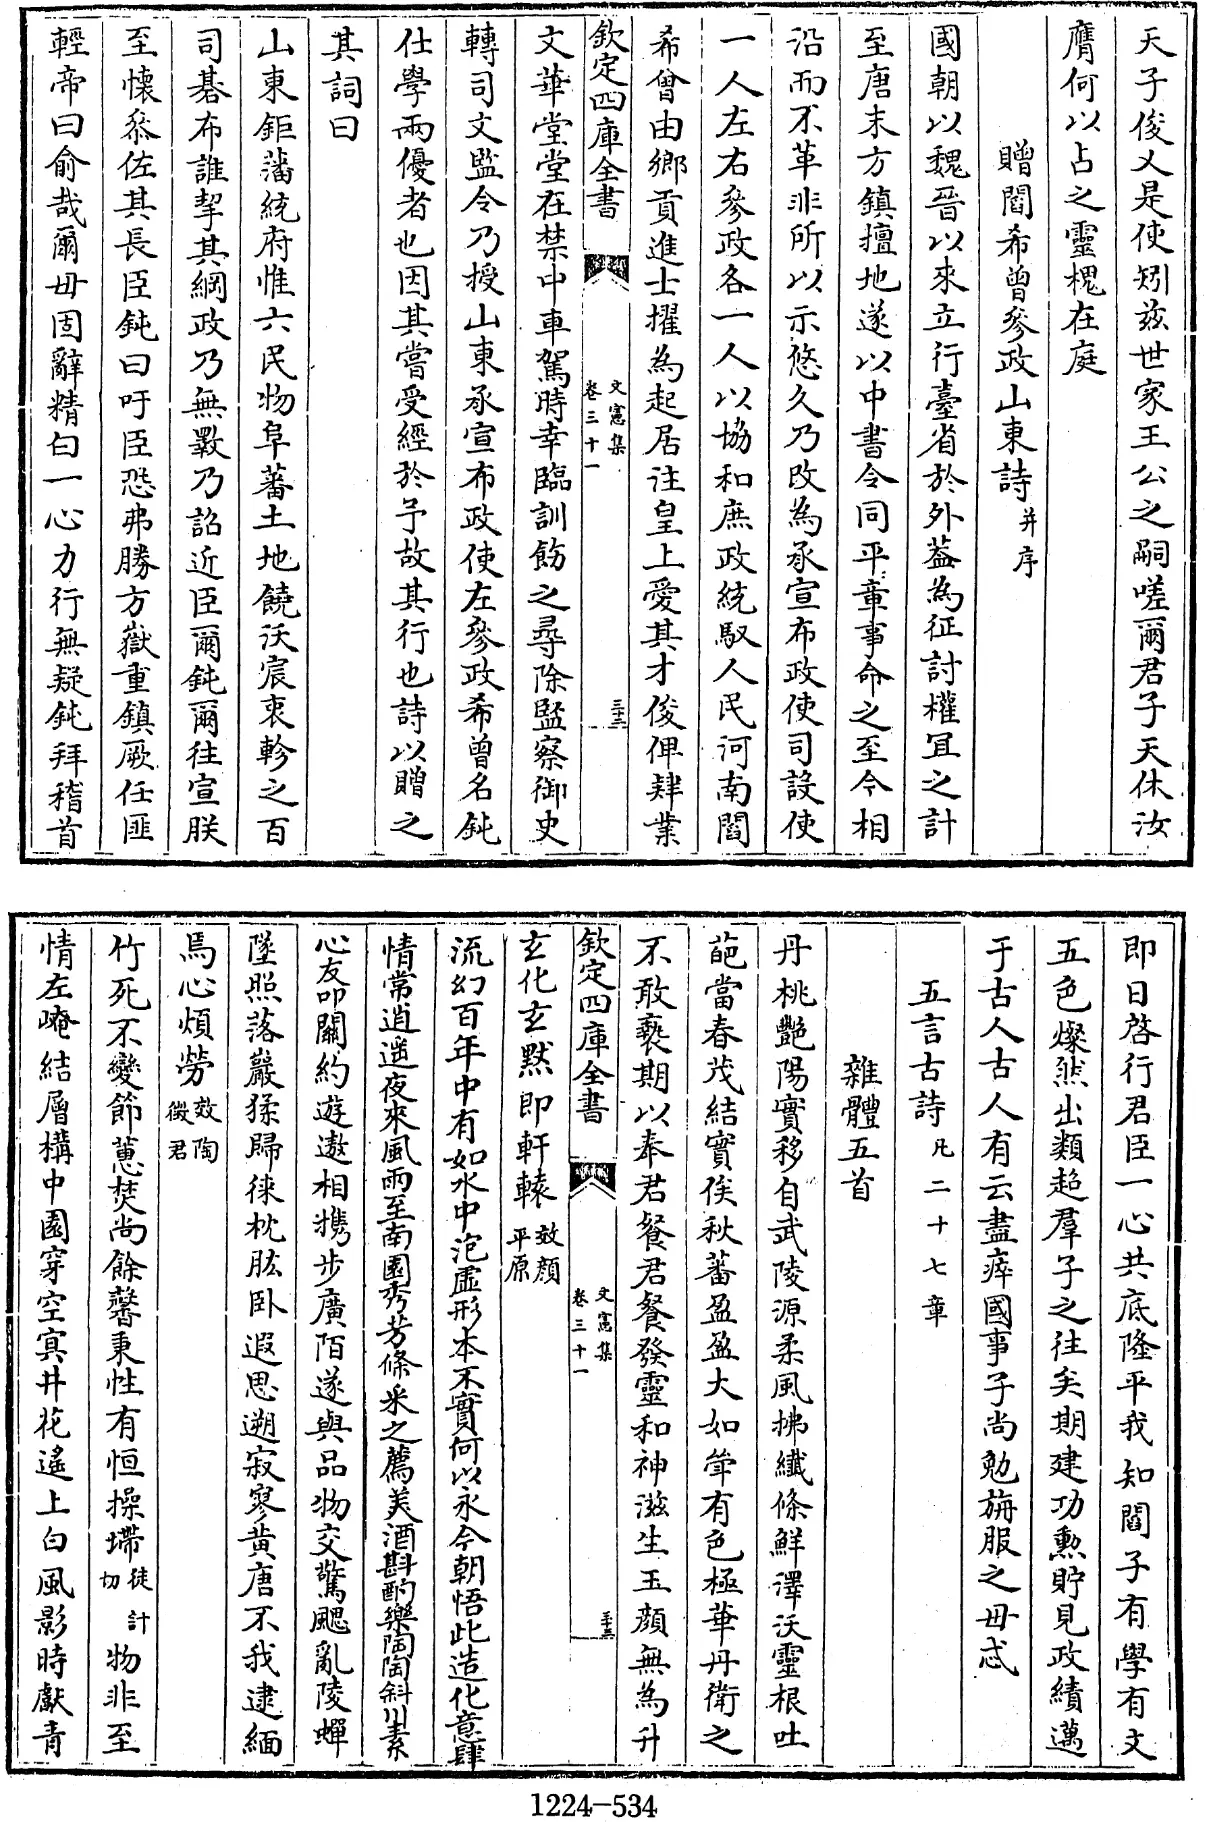 天子俊乂是使矧兹世家王公之嗣嗟爾君子天休汝
膺何以占之靈槐在庭
贈閻希曾參政山東詩并序
國朝以魏晉以來立行臺省於外葢為征討權冝之計
至唐末方鎮擅地遂以中書令同平章事命之至今相
沿而不革非所以示悠久乃改為承宣布政使司設使
一人左右參政各一人以協和庶政統馭人民河南閻
希曾由鄉貢進士擢為起居注皇上愛其才俊俾肄業
欽定四庫全書
文憲集
卷三十一
三十三
文華堂堂在禁中車駕時幸臨訓飭之尋除監察御史
轉司文監令乃授山東承宣布政使左參政希曾名鈍
仕學兩優者也因其嘗受經於予故其行也詩以贈之
其詞曰
山東鉅藩統府惟六民物阜蕃土地饒沃宸衷軫之百
司碁布誰挈其綱政乃無斁乃詔近臣爾鈍爾往宣朕
至懷叅佐其長臣鈍曰吁臣恐弗勝方嶽重鎮厥任匪
輕帝曰俞哉爾毋固辭精白一心力行無疑鈍拜稽首
即日啓行君臣一心共底隆平我知閻子有學有文
五色燦然出類超羣子之往矣期建功勲貯見政績邁
于古人古人有云盡瘁國事子尚勉旃服之毋忒
五言古詩凡二十七章
雜體五首
丹桃艷陽實移自武陵源柔風拂纎條鮮澤沃靈根吐
葩當春茂結實俟秋蕃盈盈大如斝有色極華丹衛之
不敢褻期以奉君餐君餐發靈和神滋生玉顔無為升
欽定四庫全書
文憲集
卷三十一
三十三
玄化玄默即軒轅效顔平原
流幻百年中有如水中泡虛形本不實何以永今朝悟此造化意肆
情常逍遥夜來風雨至南園秀芳條采之薦美酒斟酌樂陶陶斜川素
心友叩關約遊遨相携步廣陌遂與品物交驚颸亂陵蟬
墜照落巖猱歸徠枕肱卧遐思遡寂寥黄唐不我逮緬
焉心煩勞效陶徵君
竹死不變節蕙焚尚餘馨秉性有恒操墆徒計切物非至
情左崦結層構中園穿空㝠井花遙上白風影時獻青
1224-534